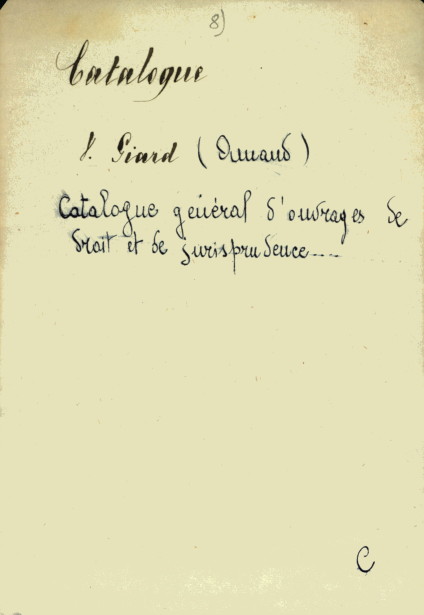 8)
Catalogue
V. Giard (Durand)
Catalogue général d'ouvrages de
droit et de jurisprudence....
C